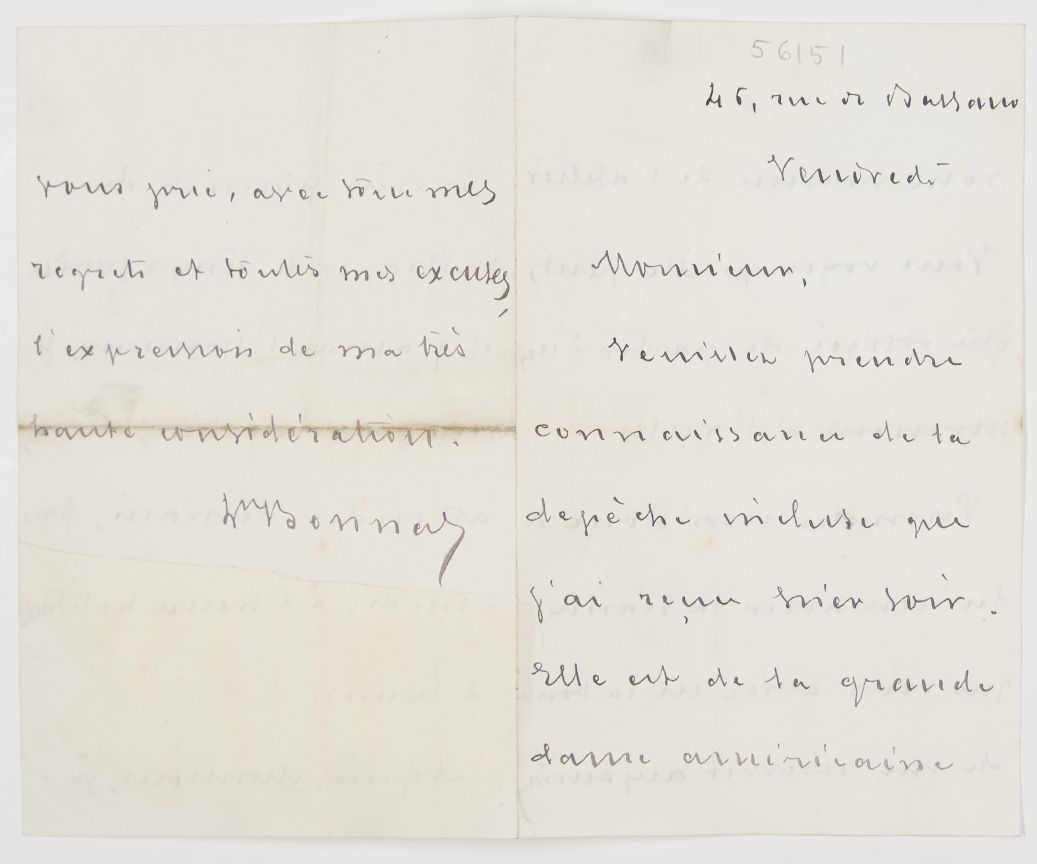 56151
46, rue de Bassano
Vendredi
Monsieur,
Veuillez prendre
connaissance de la
dépêche incluse que
j'ai reçue hier soir.
Elle est de la grande
dame américaine
vous prie, avec tous mes
regrets et toutes mes excuses,
l'expression de ma très
haute considération.
Ln Bonnat